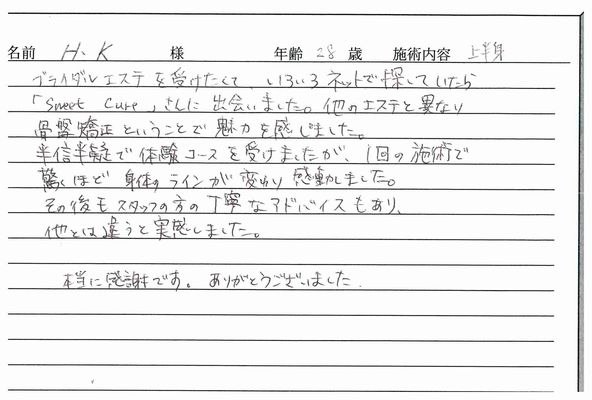 名前 H.K 様 年齢 28 歳 施術内容 上半身
ブライダルエステを受けたくて、いろいろネットで探していたら
「Sweet Cure」さんに出会いました。他のエステと異なり
骨盤矯正ということで魅力を感じました。
半信半疑で体験コースを受けましたが、1回の施術で
驚くほど身体のラインが変わり感動しました。
その後もスタッフの方の丁寧なアドバイスもあり、
他とは違うと実感しました。
本当に感謝です。ありがとうございました.